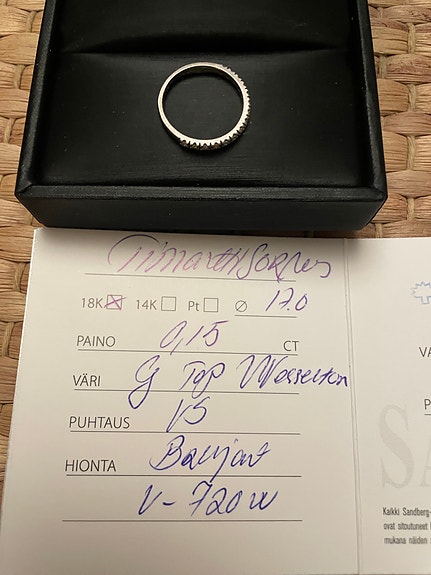 Timanttisormus
18K ☒ 14K ☐ Pt ☐ ∅ 17.0
PAINO 0,15 CT
VÄRI G Top Wesselton
PUHTAUS VS
HIONTA Briljant
V-720w
VÄ
P
SA
Kaikki Sandberg-
ovat sitoutuneet
mukana näiden